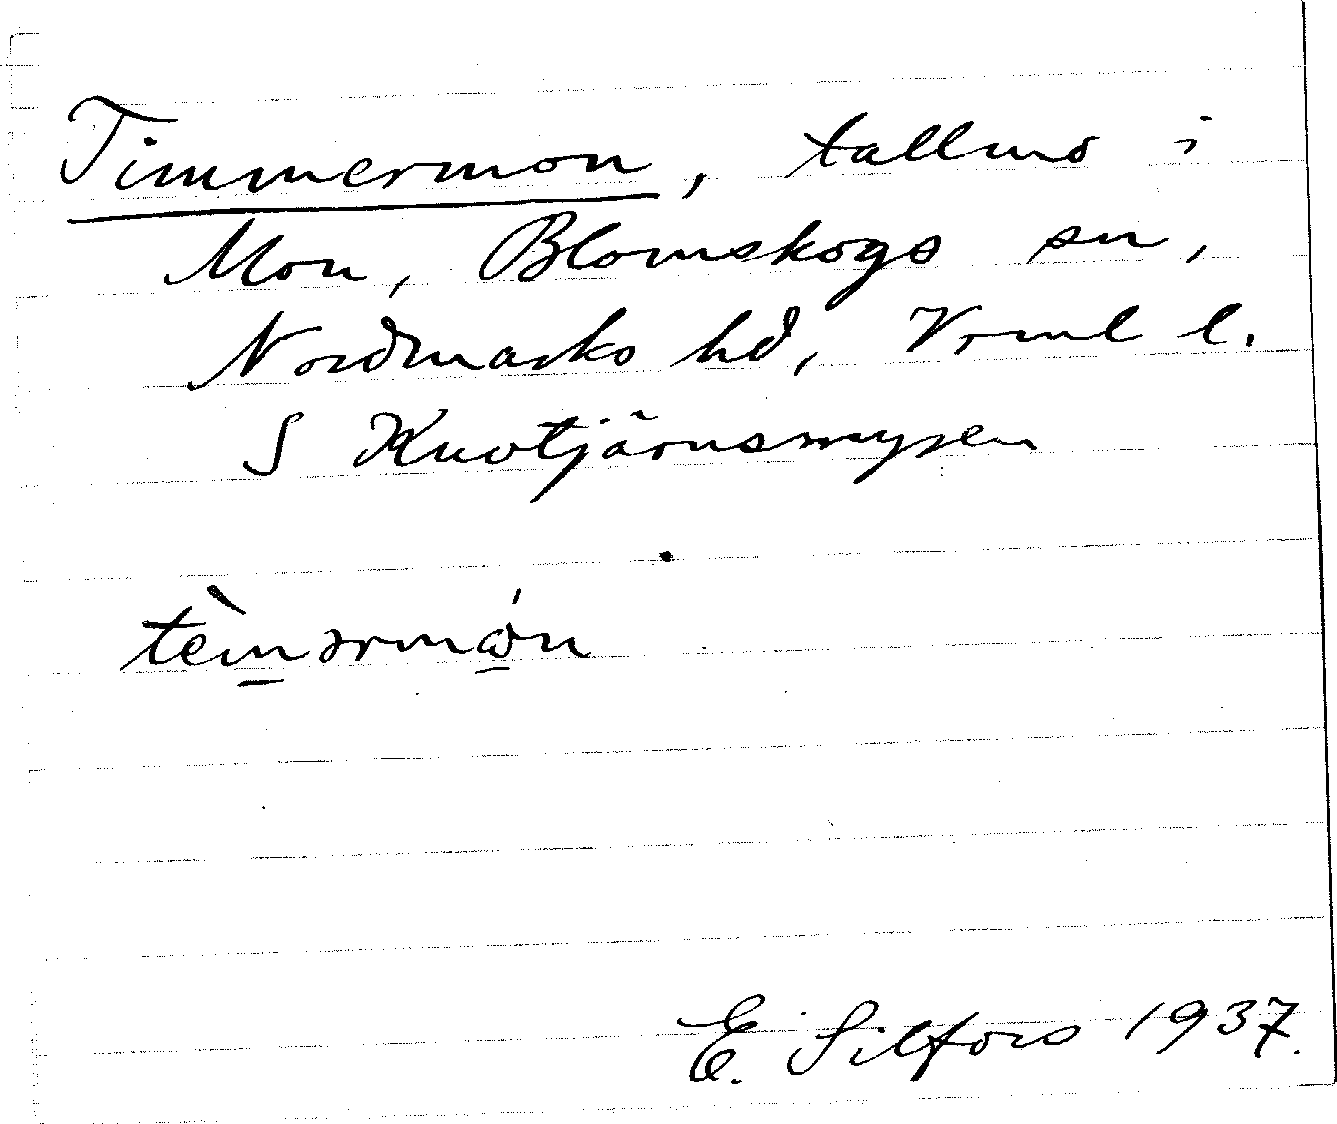 Timmermon, tallmo i
Mon, Blomskogs sn,
Nordmarks hd, Vrml l.
S Kuvtjärnsmysen
tèm̲ərmǫ́n
E. Silfors 1937.